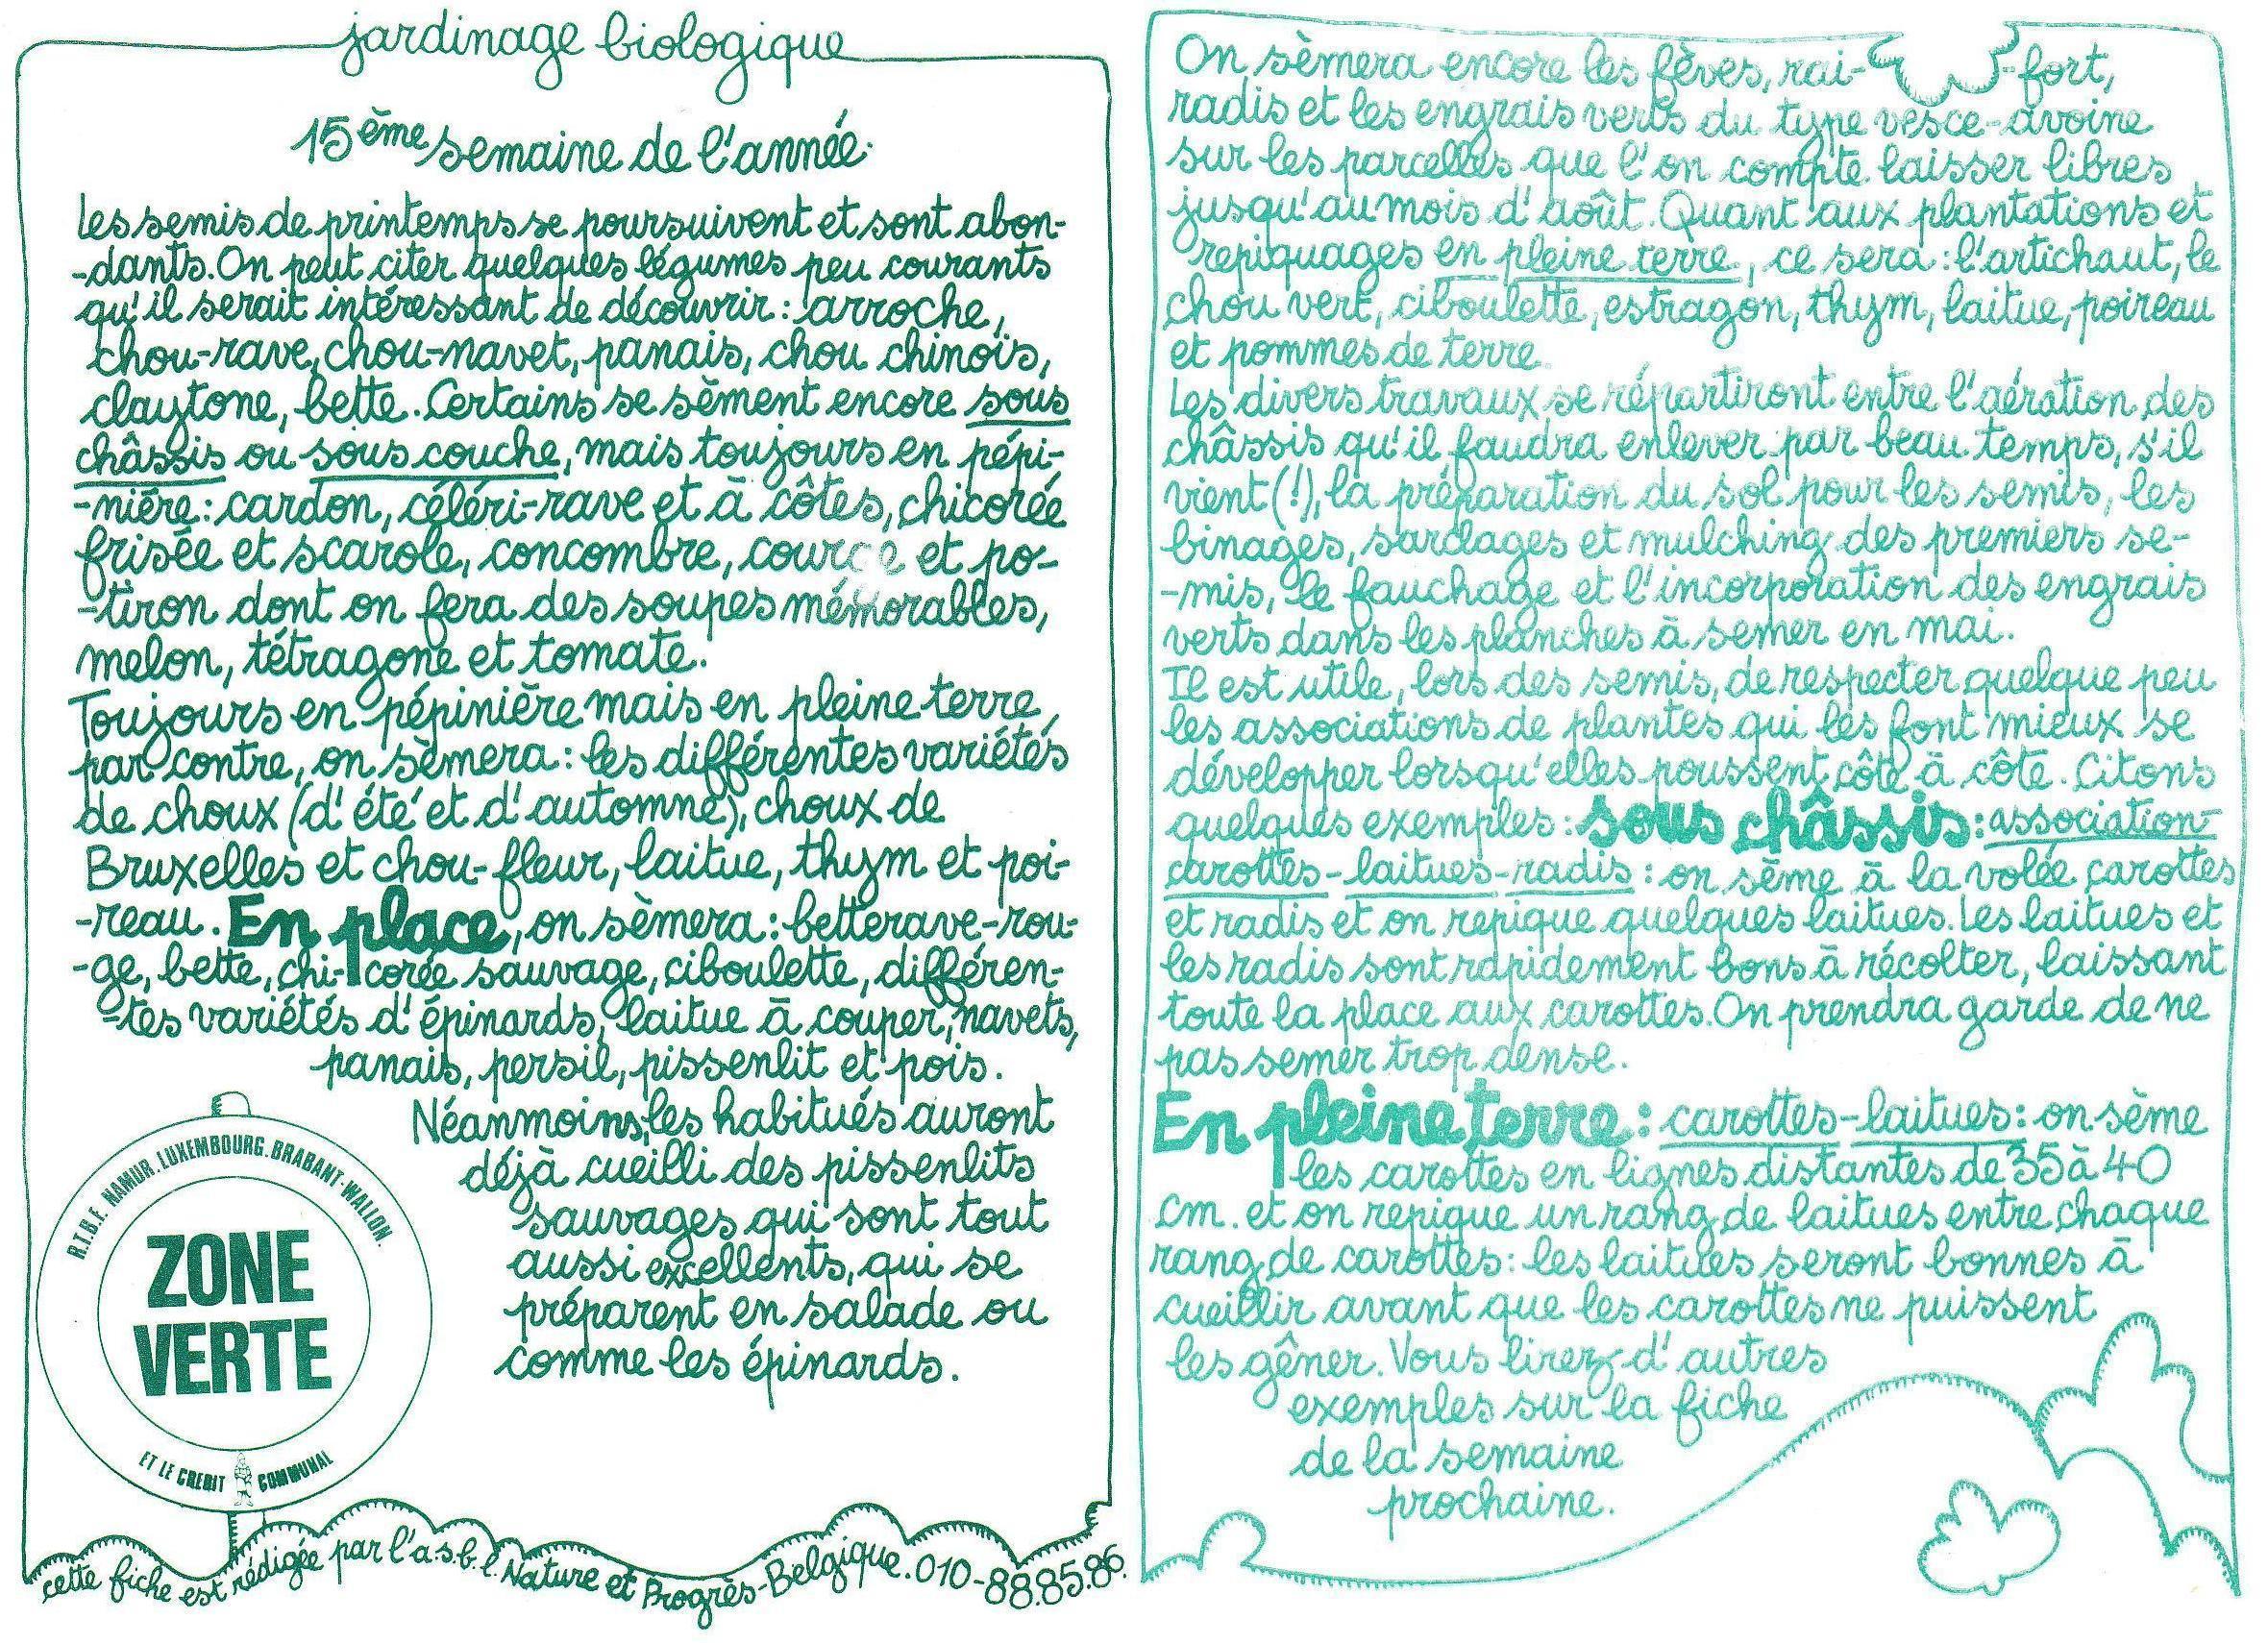 jardinage biologique
15ème semaine de l'année.
Les semis de printemps se poursuivent et sont abon-
-dants. On peut citer quelques légumes peu courants
qu'il serait intéressant de découvrir : arroche,
chou-rave, chou-navet, panais, chou chinois,
claytone, bette. Certains se sèment encore sous
châssis ou sous couche, mais toujours en pépi-
-nière : cardon, céléri-rave et à côtes, chicorée
frisée et scarole, concombre, courge et po-
-tiron dont on fera des soupes mémorables,
melon, tétragone et tomate.
Toujours en pépinière mais en pleine terre,
par contre, on sèmera : les différentes variétés
de choux (d'été et d'automne), choux de
Bruxelles et chou-fleur, laitue, thym et poi-
-reau. En place, on sèmera : betterave-rou-
-ge, bette, chi-corée sauvage, ciboulette, différen-
-tes variétés d'épinards, laitue à couper, navets,
panais, persil, pissenlit et pois.
Néanmoins, les habitués auront
déjà cueilli des pissenlits
sauvages qui sont tout
aussi excellents, qui se
préparent en salade ou
comme les épinards.
R.T.B.F. NAMUR. LUXEMBOURG. BRABANT-WALLON.
ZONE
VERTE
ET LE CREDIT COMMUNAL
cette fiche est rédigée par l'a.s.b.l. Nature et Progrès-Belgique. 010-88.85.86.
On sèmera encore les fèves, rai- -fort,
radis et les engrais verts du type vesce-avoine
sur les parcelles que l'on compte laisser libres
jusqu'au mois d'août. Quant aux plantations et
repiquages en pleine terre, ce sera : l'artichaut, le
chou vert, ciboulette, estragon, thym, laitue, poireau
et pommes de terre.
Les divers travaux se répartiront entre l'aération des
châssis qu'il faudra enlever par beau temps, s'il
vient (!), la préparation du sol pour les semis, les
binages, sarclages et mulching des premiers se-
-mis, le fauchage et l'incorporation des engrais
verts dans les planches à semer en mai.
Il est utile, lors des semis, de respecter quelque peu
les associations de plantes qui les font mieux se
développer lorsqu'elles poussent côte à côte. Citons
quelques exemples : sous châssis : association
carottes-laitues-radis : on sème à la volée carottes
et radis et on repique quelques laitues. Les laitues et
les radis sont rapidement bons à récolter, laissant
toute la place aux carottes. On prendra garde de ne
pas semer trop dense.
En pleine terre : carottes-laitues : on sème
les carottes en lignes distantes de 35 à 40
cm. et on repique un rang de laitues entre chaque
rang de carottes : les laitues seront bonnes à
cueillir avant que les carottes ne puissent
les gêner. Vous lirez d'autres
exemples sur la fiche
de la semaine
prochaine.